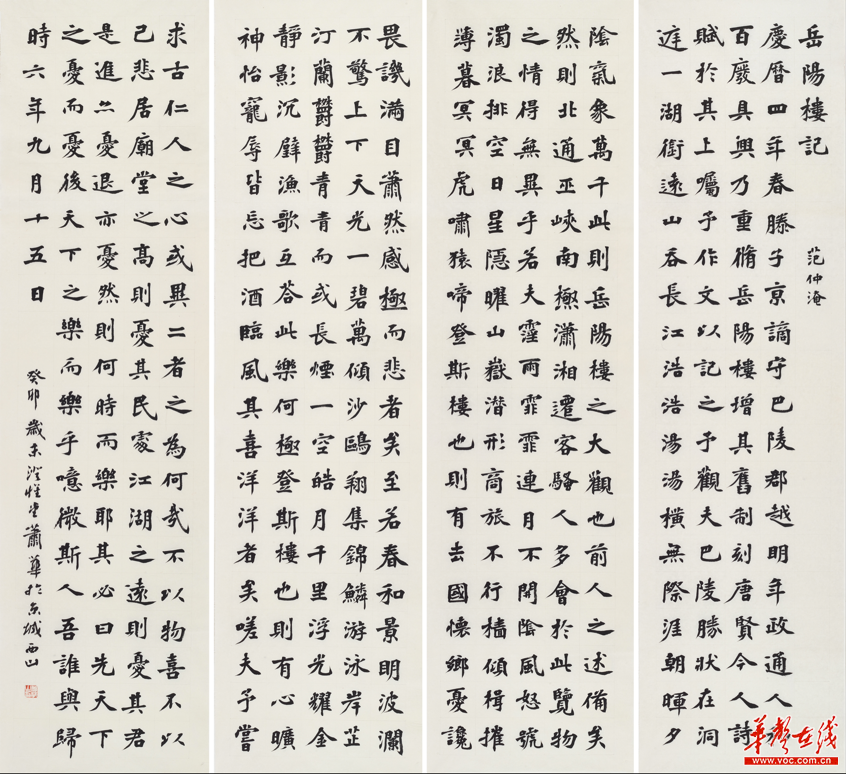 岳陽樓記 范仲淹
慶曆四年春滕子京謫守巴陵郡越明年政通人
百廢具興乃重脩岳陽樓增其舊制刻唐賢今人詩
賦於其上囑予作文以記之予觀夫巴陵勝狀在洞
庭一湖銜遠山吞長江浩浩湯湯橫無際涯朝暉夕
陰氣象萬千此則岳陽樓之大觀也前人之述備矣
然則北通巫峽南極瀟湘遷客騷人多會於此覽物
之情得無異乎若夫霪雨霏霏連月不開陰風怒號
濁浪排空日星隱曜山嶽潛形商旅不行檣傾楫摧
薄暮冥冥虎嘯猿啼登斯樓也則有去國懷鄉憂讒
畏譏滿目蕭然感極而悲者矣至若春和景明波瀾
不驚上下天光一碧萬傾沙鷗翔集錦鱗游泳岸芷
汀蘭鬱鬱青青而或長煙一空皓月千里浮光耀金
靜影沉璧漁歌互答此樂何極登斯樓也則有心曠
神怡寵辱皆忘把酒臨風其喜洋洋者矣嗟夫予嘗
求古仁人之心或異二者之為何哉不以物喜不以
己悲居廟堂之高則憂其民處江湖之遠則憂其君
是進亦憂退亦憂然則何時而樂耶其必曰先天下
之憂而憂後天下之樂而樂乎噫微斯人吾誰與歸
時六年九月十五日
癸卯歲末澄懷堂蕭華於京城西山
華聲在线
www.voc.com.cn